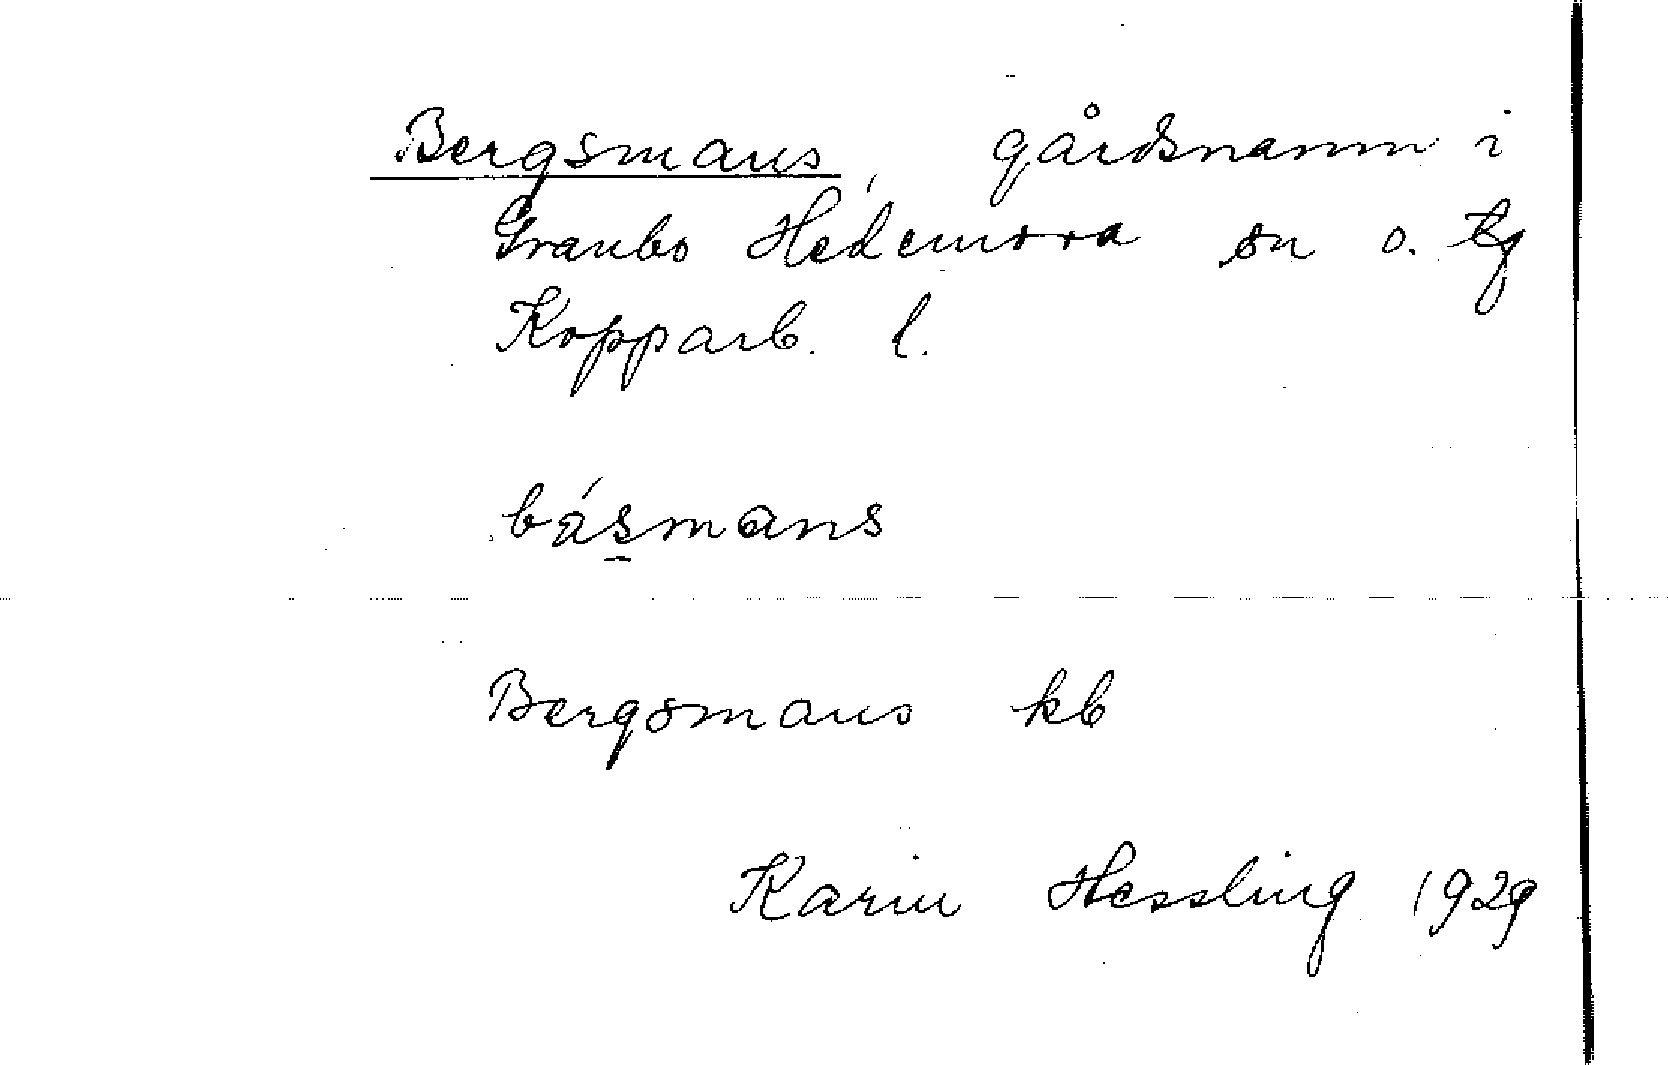 Bergsmans, gårdsnamn i
Granbo Hedemora sn o. tg
Kopparb. l.
básmans
Bergsmans kb
Karin Hessling 1929